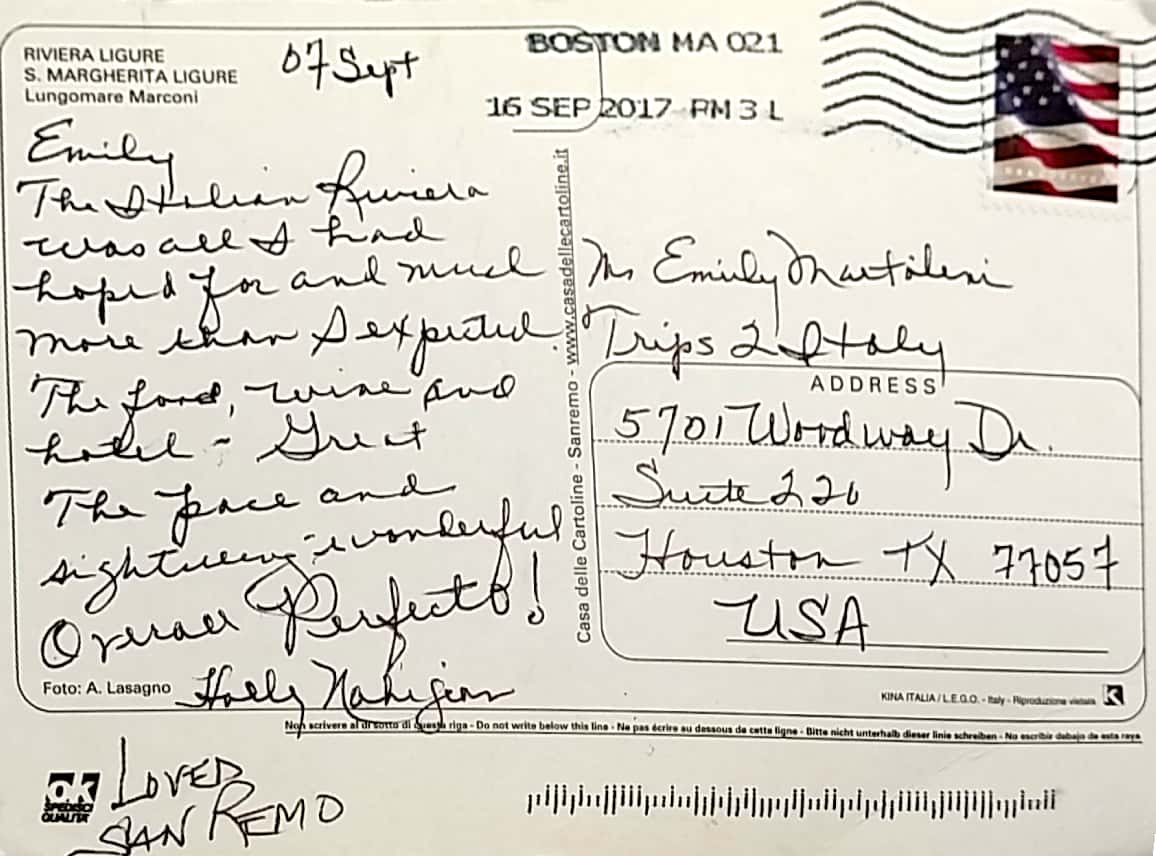 RIVIERA LIGURE
S. MARGHERITA LIGURE
Lungomare Marconi
07 Sept
BOSTON MA 021
16 SEP 2017 PM 3 L
Emily
The Italian Riviera
was all I had
hoped for and much
more than I expected.
The food, wine and
hotel - Great
The pace and
sightseeing - wonderful
Overall Perfecto!
Holly
Foto: A. Lasagno
Casa delle Cartoline - Sanremo - www.casadellecartoline.it
Ms Emily
Trips 2 Italy
ADDRESS
5701 Woodway Dr.
Suite 226
Houston TX 77057
USA
KINA ITALIA / L.E.G.O. - Italy - Riproduzione vietata K
Non scrivere al di sotto di questa riga - Do not write below this line - Ne pas écrire au dessous de cette ligne - Bitte nicht unterhalb dieser linie schreiben - No escribir debajo de esta raya
ok
SPEDISCI
QUALITA'
LOVED
SAN REMO